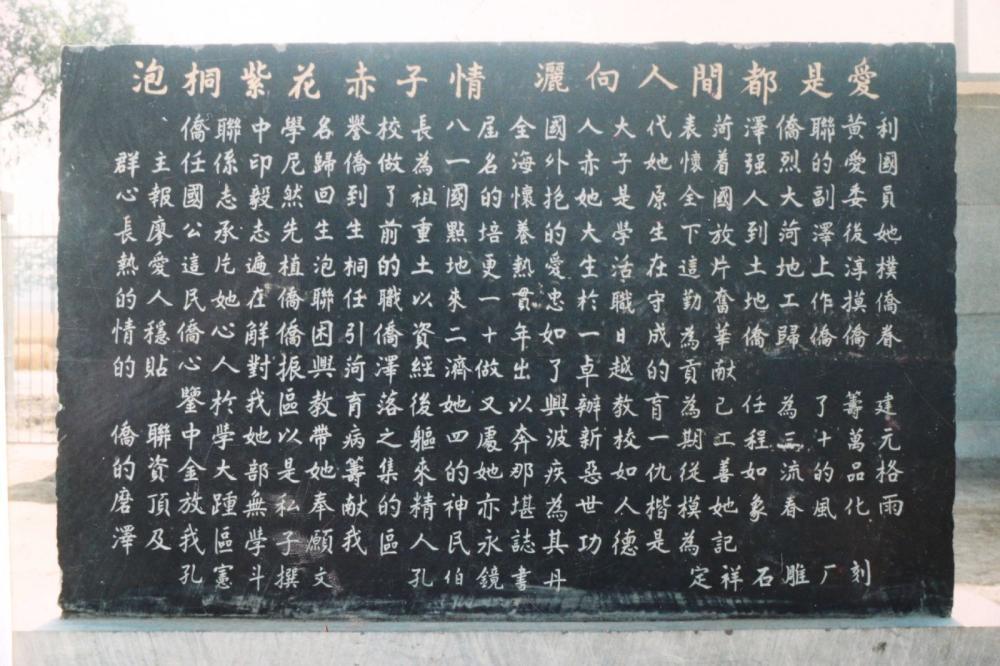 泡桐紫花赤子情 灑向人間都是愛
、僑聯中學名譽校長八屆全國人大代表菏澤僑聯黃利
群主任係印尼歸僑做為一名海外赤子她懷着强烈的愛國
心報國志毅然回到了祖國的懷抱她是原全國人大副委員
長廖公承志先生生前重點培養的大學生下放到菏澤後她
熱愛這片遍植泡桐的土地更熱愛生活在這片土地上淳樸
的人民她在僑聯任職以來一貫忠於職守勤奮地工作摸僑
情穩僑心解僑困引僑資二十年如一日成為華僑歸僑僑眷
的貼心人對振興菏澤經濟做出了卓越的貢献
鑒於我區教育落後她又以興辦教育為己任為了籌建
僑聯中學她以帶病之軀四處奔波新校一期工程三十萬元
的資金大部是她籌集來的她那疾惡如仇從善如流的品格
磨頂放踵無私奉献的精神亦堪為世人楷模她象春風化雨
澤及我區學子願我區人民永誌其功德是為記
孔憲斗撰文 孔伯鏡書丹 定祥石雕厂刻